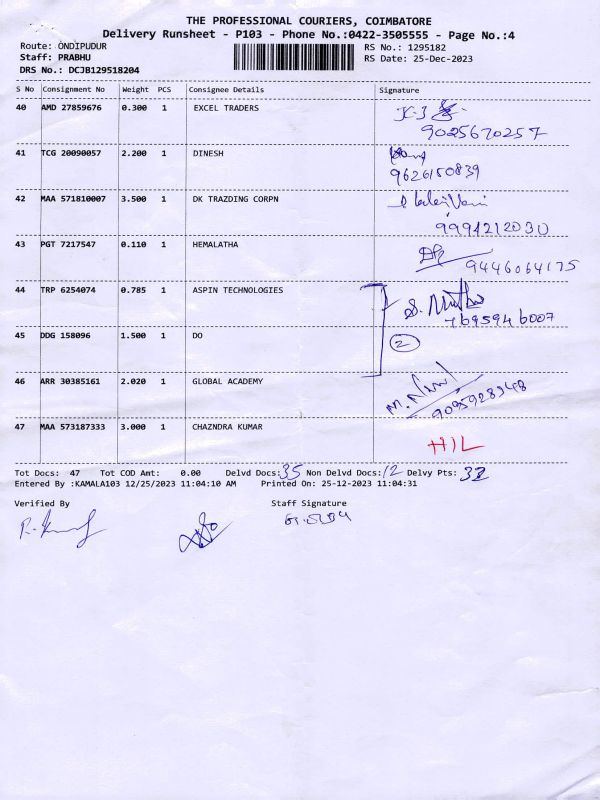 THE PROFESSIONAL COURIERS, COIMBATORE
Delivery Runsheet - P103 - Phone No.:0422-3505555 - Page No.:4
Route: ONDIPUDUR RS No.: 1295182
Staff: PRABHU RS Date: 25-Dec-2023
DRS No.: DCJB129518204
S No Consignment No Weight PCS Consignee Details Signature
40 AMD 27859676 0.300 1 EXCEL TRADERS
9025670257
41 TCG 20090057 2.200 1 DINESH
9626150839
42 MAA 571810007 3.500 1 DK TRAZDING CORPN
9994212030
43 PGT 7217547 0.110 1 HEMALATHA
9446064175
44 TRP 6254074 0.785 1 ASPIN TECHNOLOGIES
7695946007
45 DDG 158096 1.500 1 DO
2
46 ARR 30385161 2.020 1 GLOBAL ACADEMY
9095928948
47 MAA 573187333 3.000 1 CHAZNDRA KUMAR
H/L
Tot Docs: 47 Tot COD Amt: 0.00 Delvd Docs: 35 Non Delvd Docs: 12 Delvy Pts: 32
Entered By :KAMALA103 12/25/2023 11:04:10 AM Printed On: 25-12-2023 11:04:31
Verified By Staff Signature